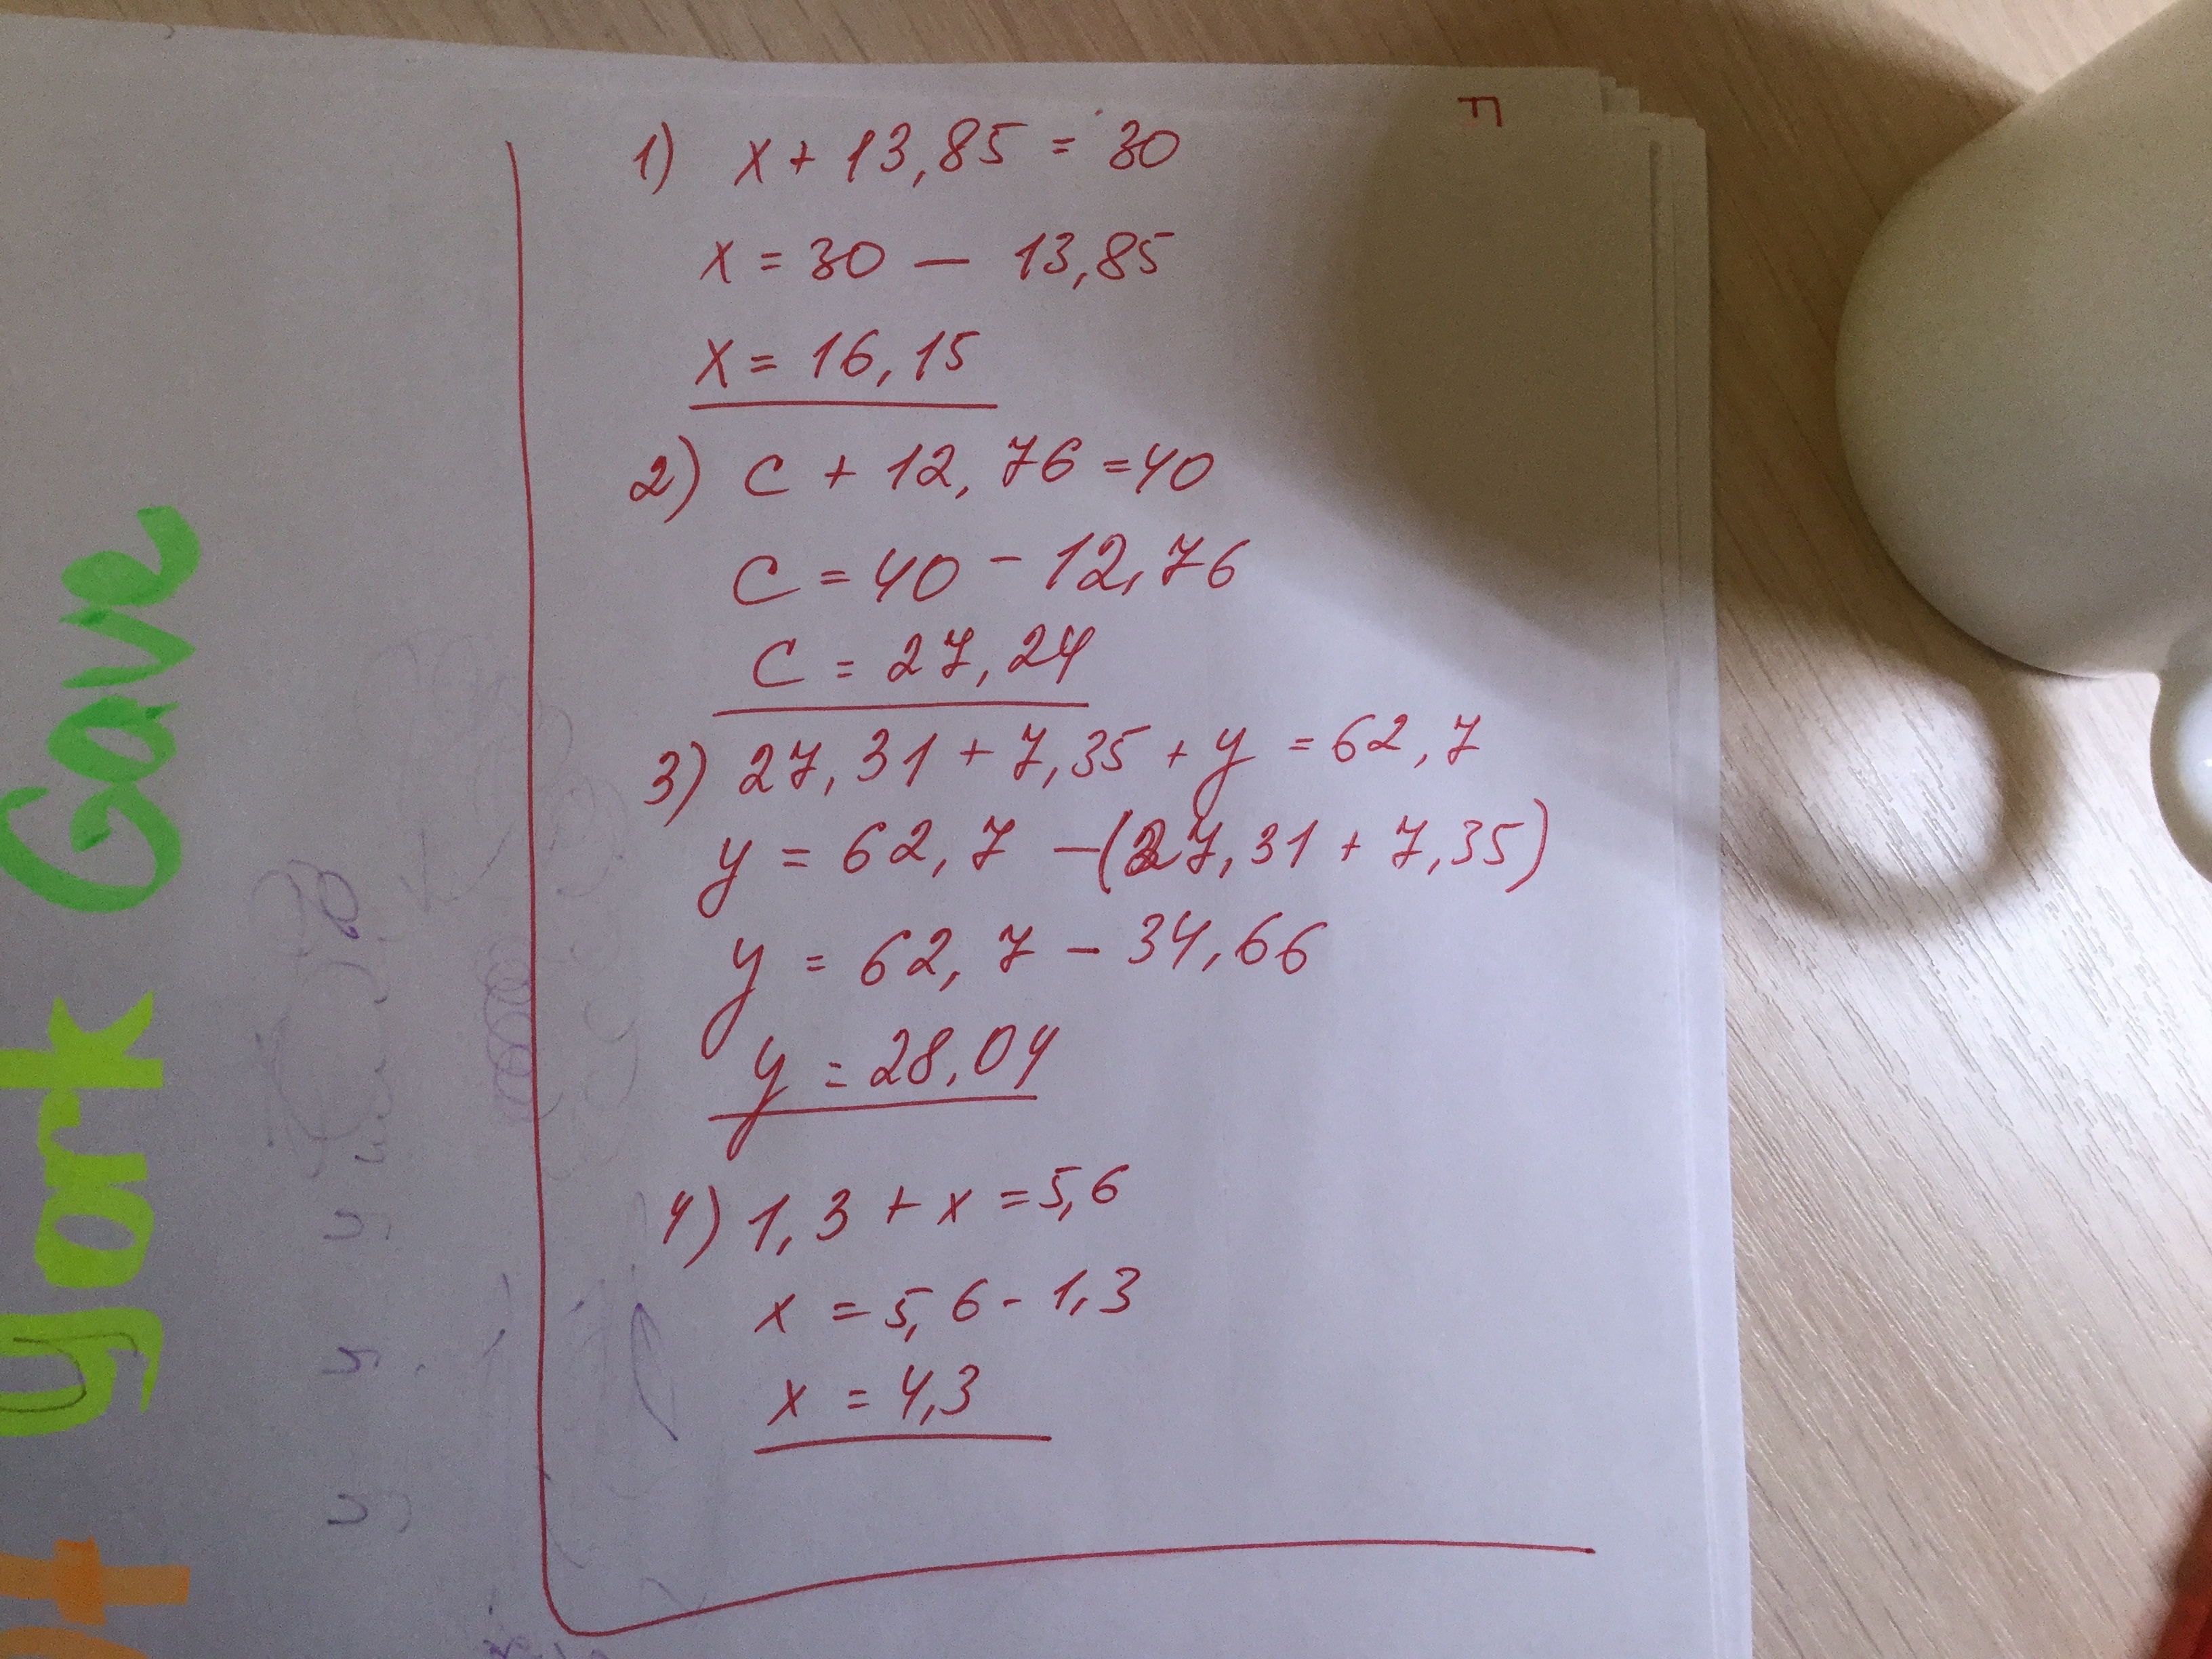 1) x + 13,85 = 30
x = 30 - 13,85
x = 16,15
2) c + 12,76 = 40
c = 40 - 12,76
c = 27,24
3) 27,31 + 7,35 + y = 62,7
y = 62,7 - (27,31 + 7,35)
y = 62,7 - 34,66
y = 28,04
4) 1,3 + x = 5,6
x = 5,6 - 1,3
x = 4,3
york Gave